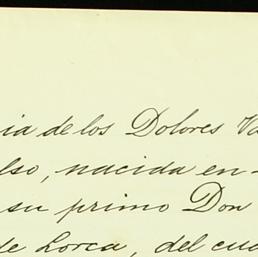 ia de los Dolores Va
lso, nacida en
su primo Don
de Lorca, del cua